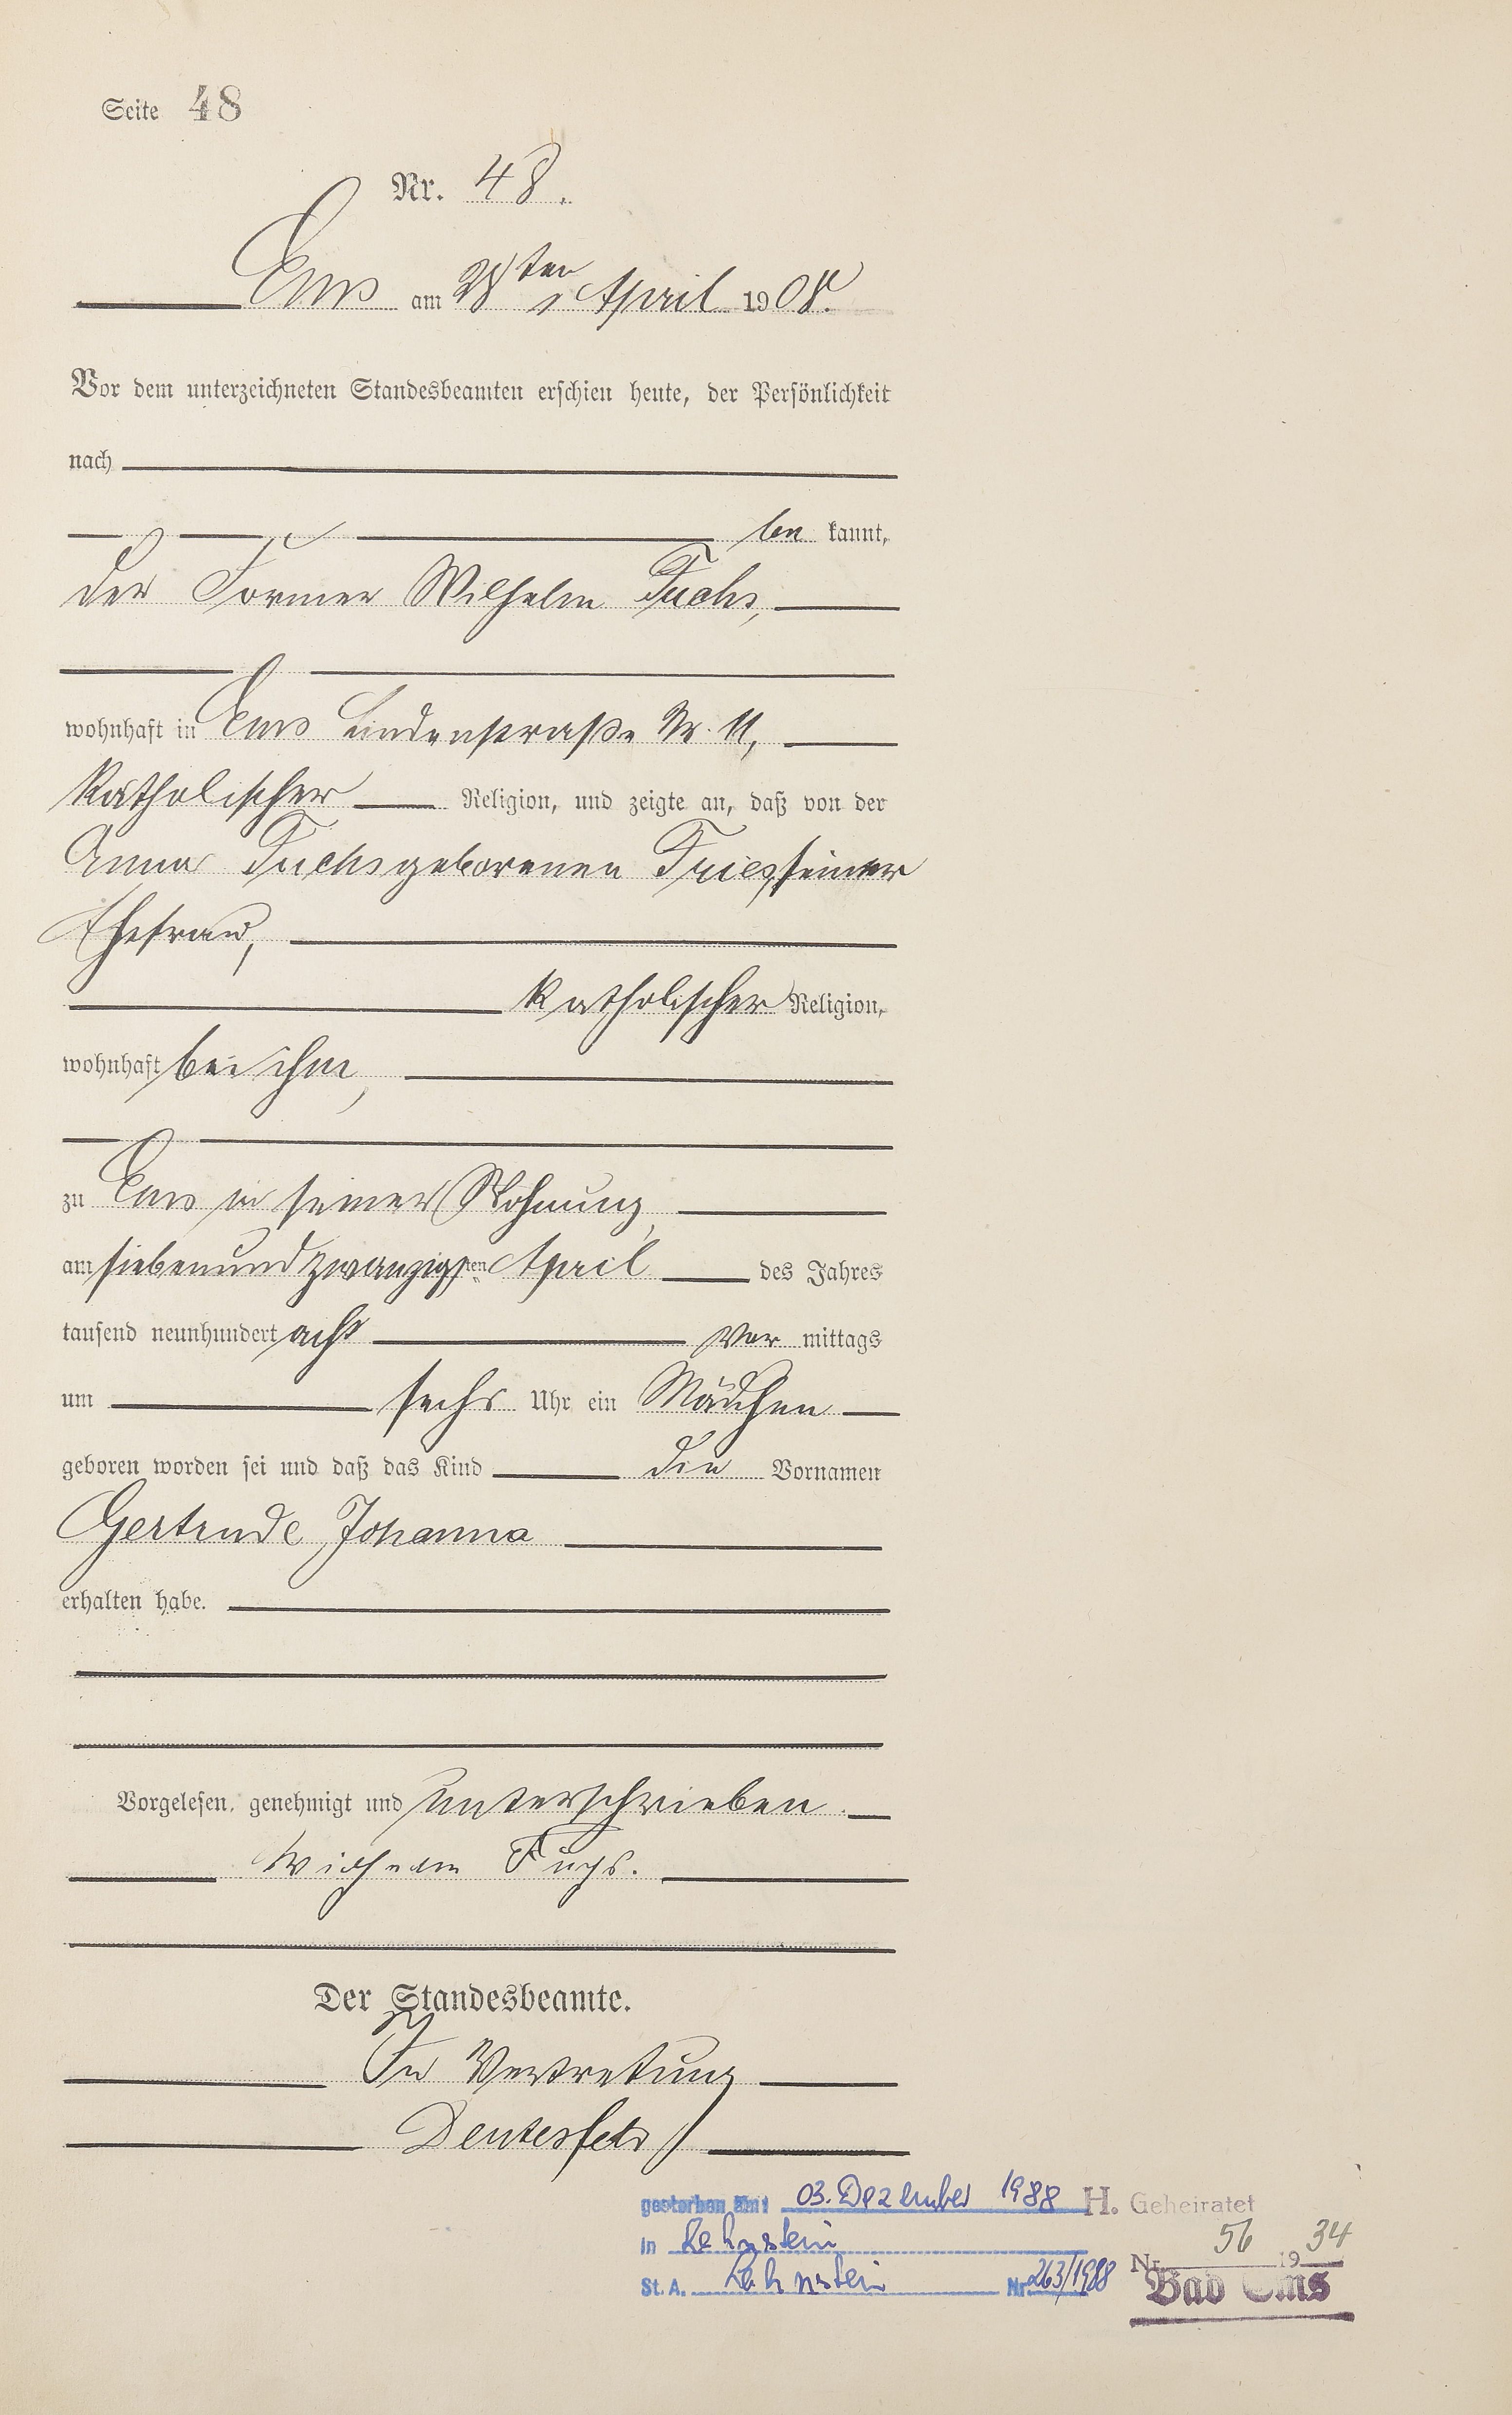 Seite 48
Nr. 48.
Ems am 28ten April 1908.
Vor dem unterzeichneten Standesbeamten erschien heute, der Persönlichkeit
nach
be kannt,
der Former Wilhelm Fuchs,
wohnhaft in Ems Lindenstraße Nr. 11,
katholischer Religion, und zeigte an, daß von der
Anna Fuchs geborenen Fries, seiner
Ehefrau,
katholischer Religion,
wohnhaft bei ihm,
zu Ems in seiner Wohnung,
am siebenundzwanzigsten April des Jahres
tausend neunhundert acht Vor mittags
um sechs Uhr ein Mädchen
geboren worden sei und daß das Kind die Vornamen
Gertrude Johanna
erhalten habe.
Vorgelesen, genehmigt und unterschrieben.
Wilhelm Fuchs.
Der Standesbeamte.
In Vertretung
gestorben am: 03. Dezember 1988
in Lahnstein
St. A. Lahnstein Nr. 263/1988
H. Geheiratet
Nr. 56 1934
Bad Ems